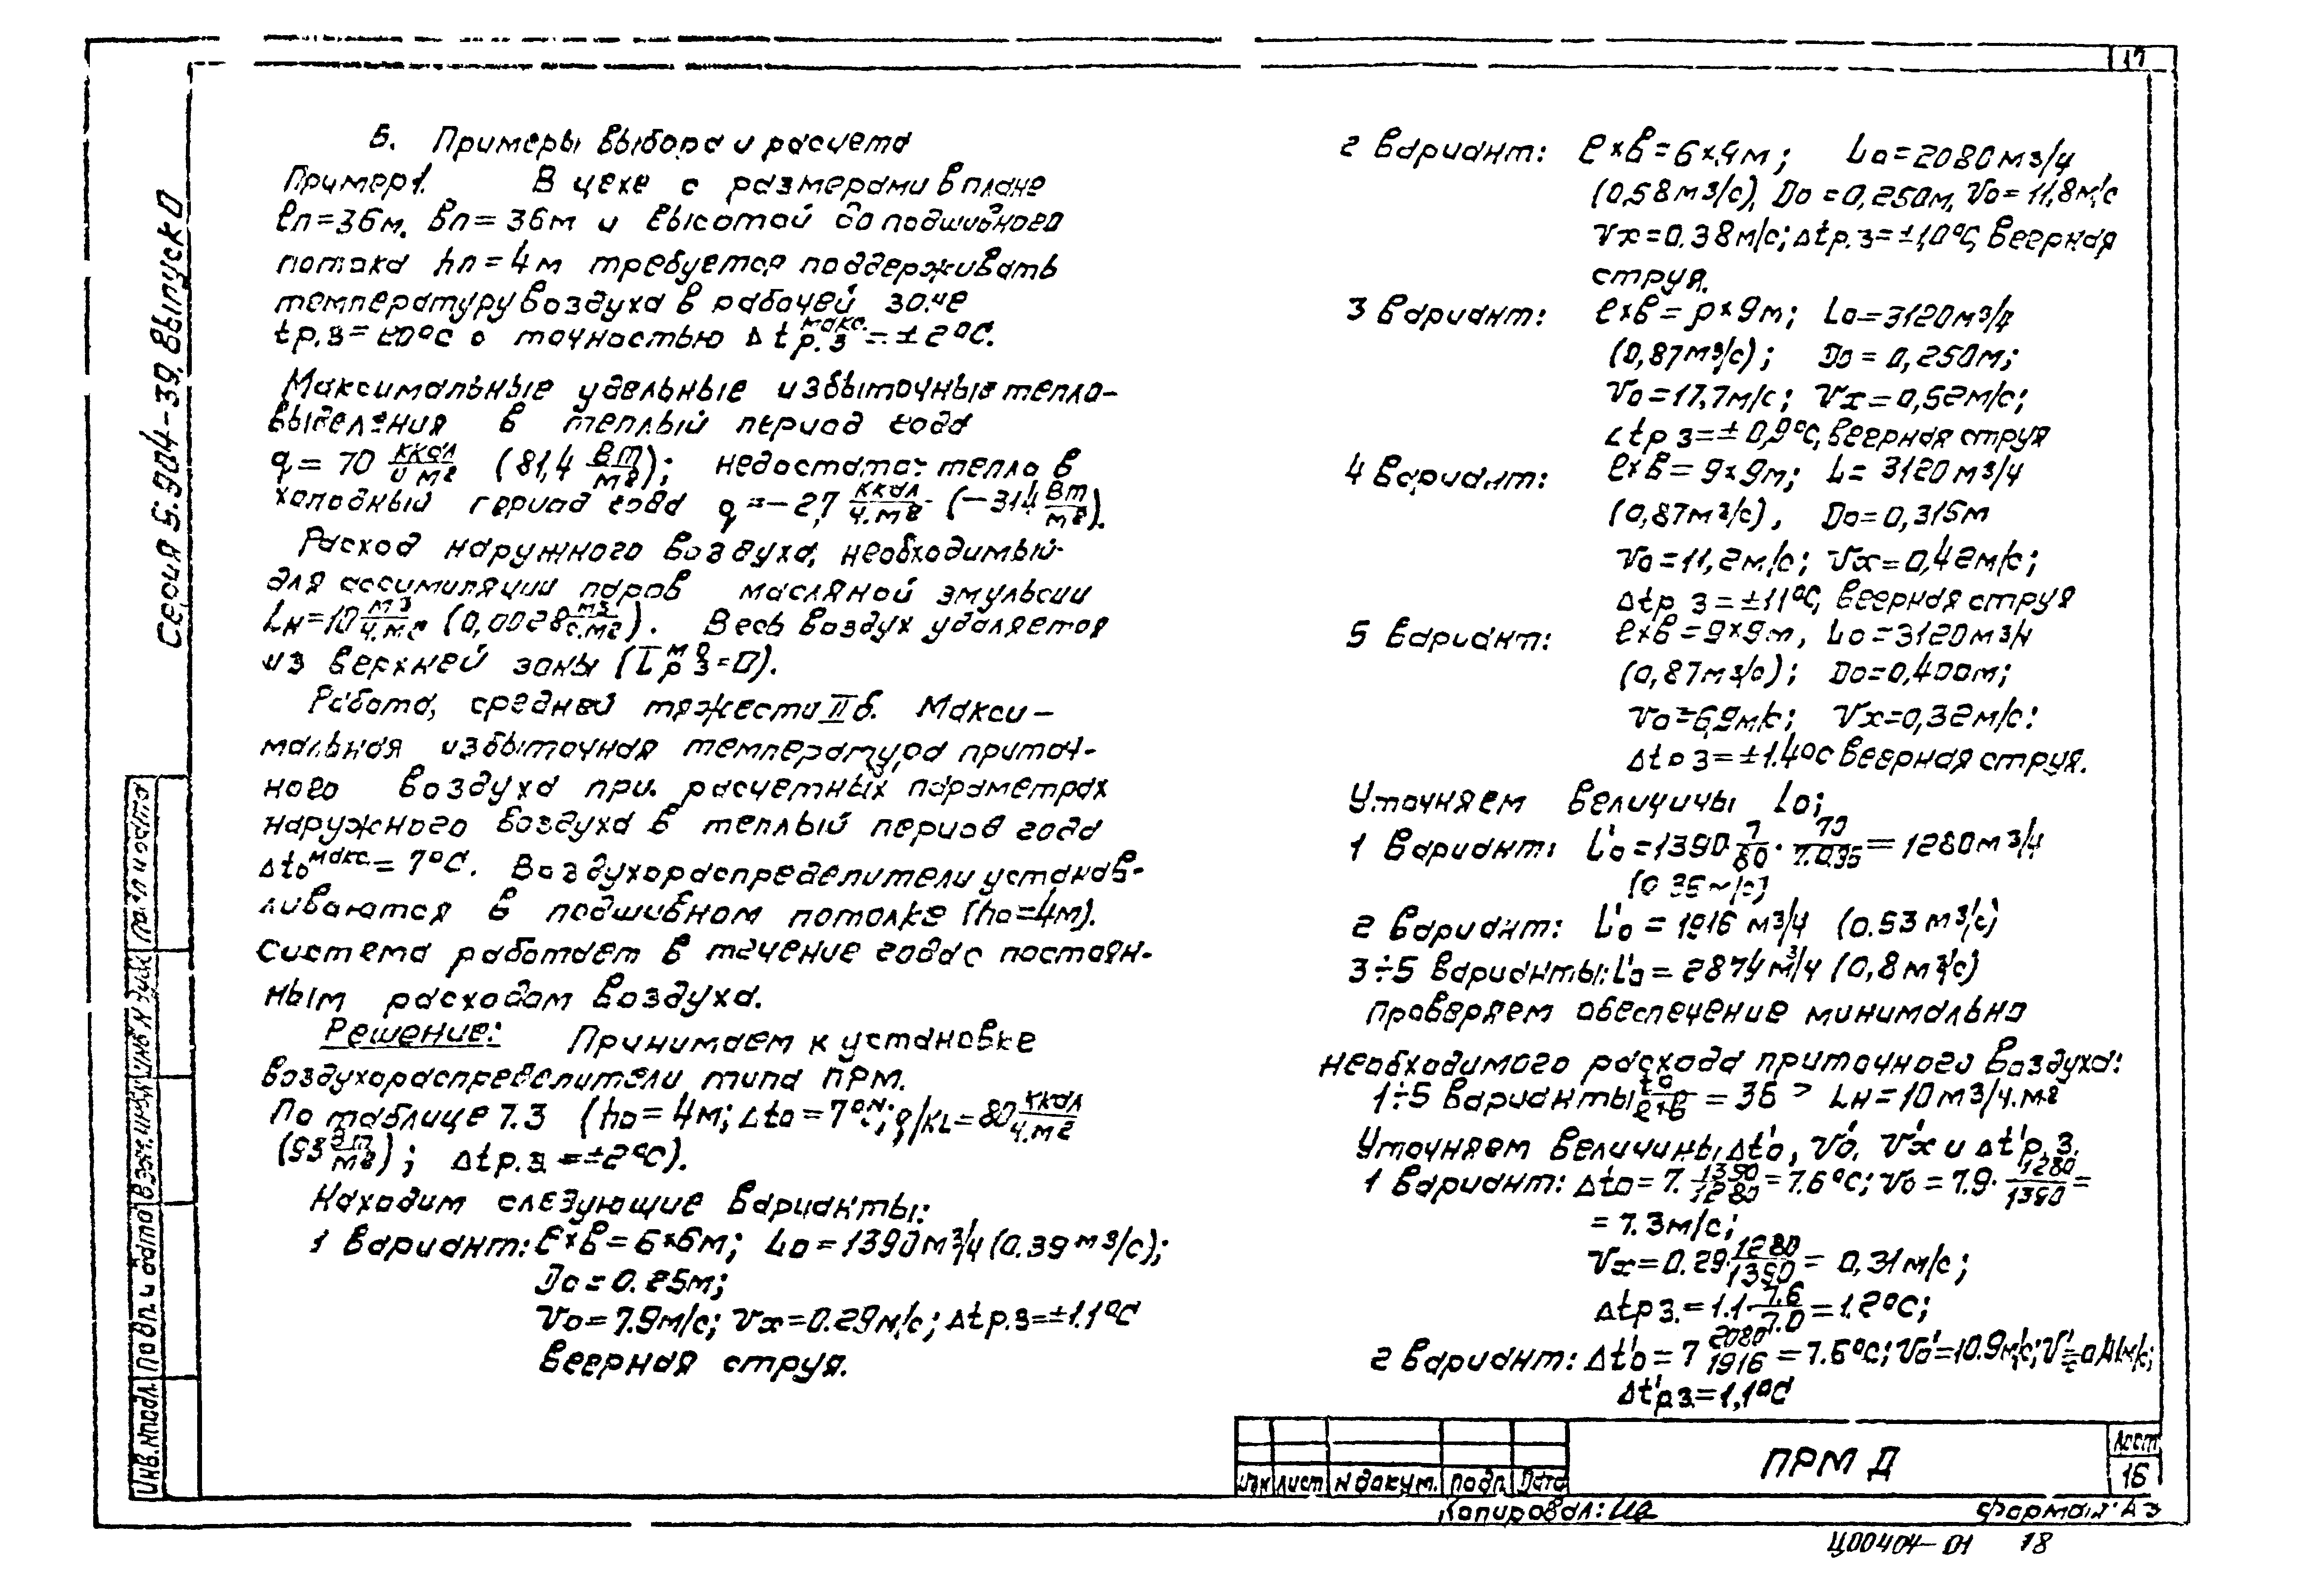 17
Серия 5.904-39, Выпуск 0
5. Примеры выбора и расчета
Пример 1. В цехе с размерами в плане
ln=36м, bn=36м и высотой до подшивного
потока hn=4м требуется поддерживать
температуру воздуха в рабочей зоне
tр.з=20°С с точностью Δt р.з макс.=±2°С.
Максимальные удельные избыточные тепло-
выделения в теплый период года
q=70 ккал/ч м² (81,4 Вт/м²); недостаток тепло в
холодный период года q=-27 ккал/ч.м² (-31,4 Вт/м²).
Расход наружного воздуха, необходимый
для ассимиляции паров масляной эмульсии
Lн=10 м³/ч.м² (0,0028 м³/с.м²). Весь воздух удаляется
из верхней зоны
Работа, средней тяжести IIб. Макси-
мальная избыточная температура приточ-
ного воздуха при расчетных параметрах
наружного воздуха в теплый период года
Δto макс.=7°С. Воздухораспределители устанав-
ливаются в подшивном потолке (ho=4м).
Система работает в течение года с постоян-
ным расходом воздуха.
Решение: Принимаем к установке
воздухораспределители типа ПРМ.
По таблице 7.3 (ho=4м; Δto=7°С; q/KL=80 ккал/ч.м²
(93 Вт/м²); Δtр.з=±2°С).
Находим следующие варианты:
1 вариант: l×b=6×6м; Lo=1390м³/ч (0.39 м³/с);
Do=0.25м;
Vo=7.9м/с; Vx=0.29м/с; Δtр.з=±1.1°С
веерная струя.
2 вариант: l×b=6×9м; Lo=2080м³/ч
(0,58м³/с), Do=0,250м, Vo=11,8м/с
Vx=0.38м/с; Δtр.з=±1,0°С, веерная
струя.
3 вариант: l×b=9×9м; Lo=3120м³/ч
(0,87м³/с); Do=0,250м;
Vo=17,7м/с; Vx=0,52м/с;
Δtр.з=±0,9°С, веерная струя
4 вариант: l×b=9×9м; L=3120м³/ч
(0,87м³/с), Do=0,315м
Vo=11,2м/с; Vx=0,42м/с;
Δtр.з=±1.1°С, веерная струя
5 вариант: l×b=9×9м, Lo=3120м³/ч
(0,87м³/с); Do=0,400м;
Vo=6,9м/с; Vx=0,32м/с;
Δtр.з=±1.4°С веерная струя.
Уточняем величины Lo;
1 вариант: L'o=1390· 7/80 · 70/7.0,95 =1280м³/ч
2 вариант: L'o=1916 м³/ч (0.53 м³/с)
3÷5 варианты: L'o=2874м³/ч (0,8м³/с)
Проверяем обеспечение минимально
необходимого расхода приточного воздуха:
1÷5 варианты Lo/l×b = 36 > Lн=10м³/ч.м²
Уточняем величины Δt'o, V'o, V'x и Δt'р.з.
1 вариант: Δto=7· 1390/1280 =7.6°С; Vo=7.9· 1280/1390 =
=7.3м/с;
Vx=0.29· 1280/1390 = 0,31м/с;
Δtр.з.=1.1· 7.6/7.0 =1.2°С;
2 вариант: Δt'o=7 2080/1916 =7.6°С; V'o=10.9м/с;
Δt'р.з=1,1°С
Инв.№подл. Подп. и дата Взам.инв.№
Изм Лист № докум. Подп. Дата
ПРМ Д
Лист
16
Копировал:
Формат: А3
Ц00404-01 18